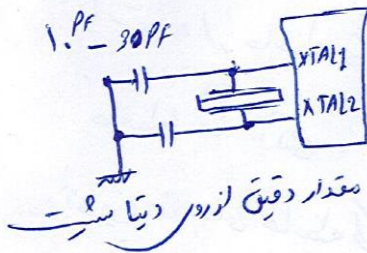 ۱۰PF - 30PF
XTAL1
XTAL2
مقدار دقیق از روی دیتا شیت